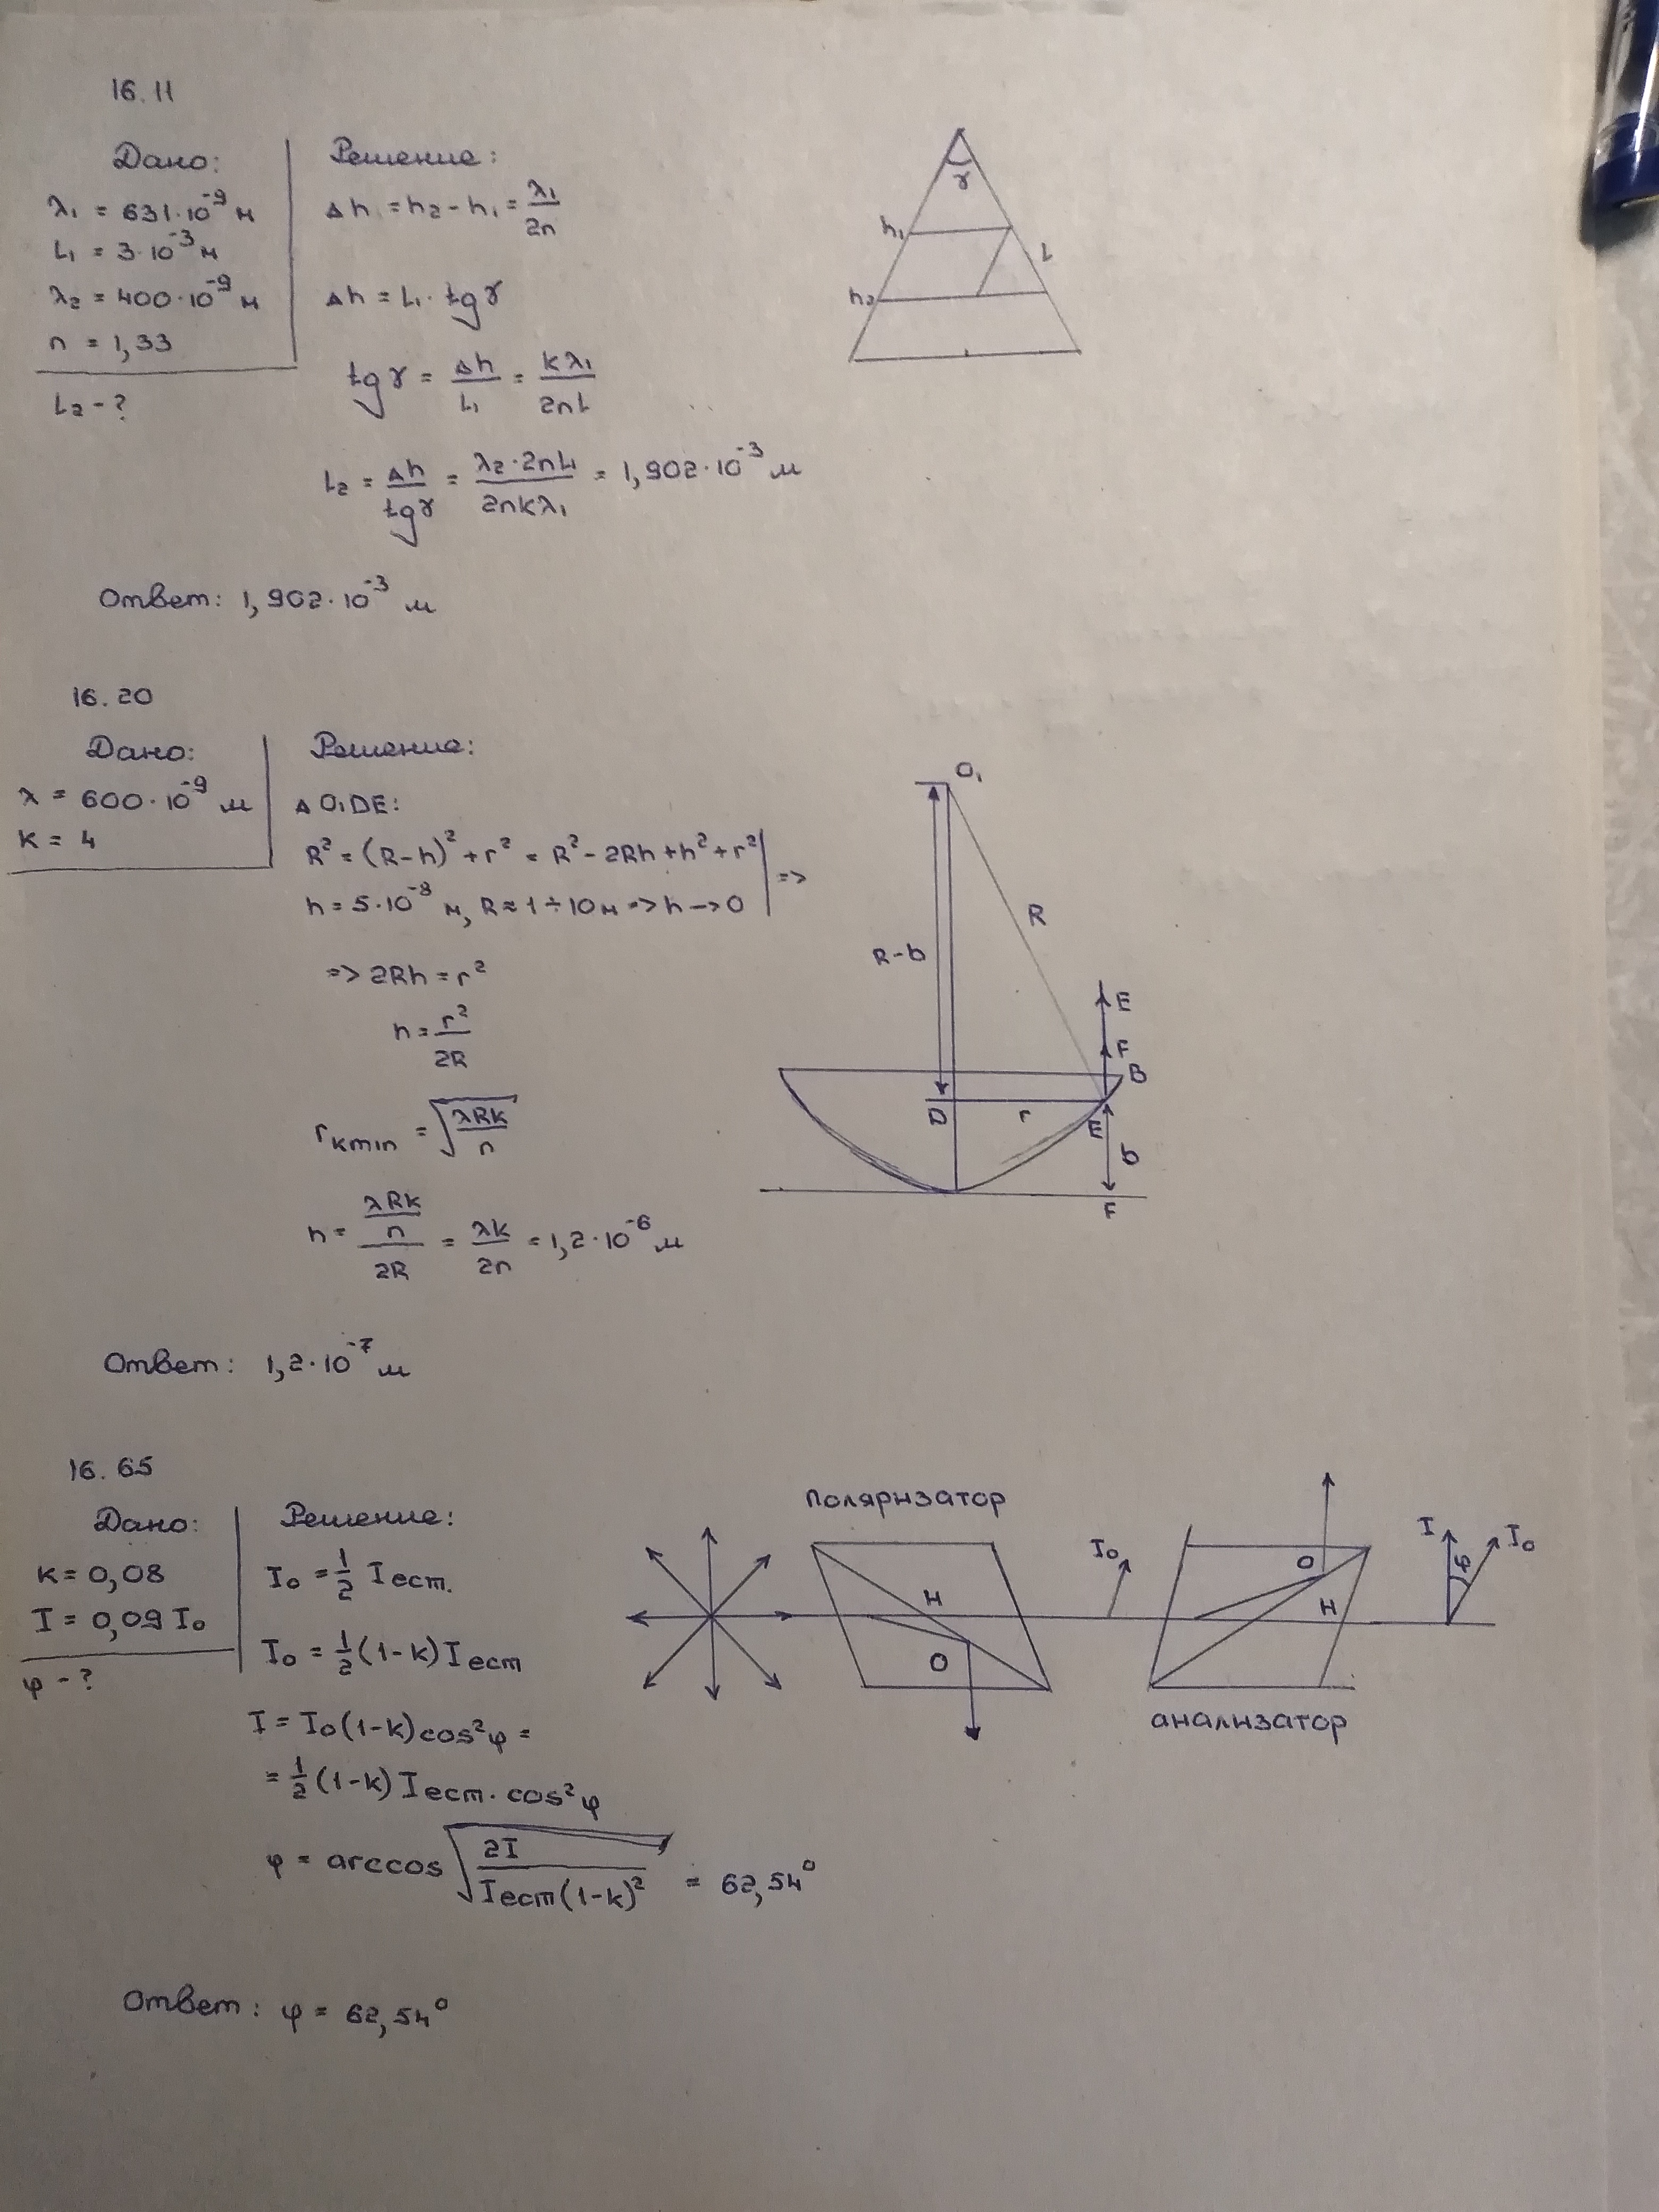 16.11
Дано:
λ₁ = 631·10⁻⁹ м
L₁ = 3·10⁻³ м
λ₂ = 400·10⁻⁹ м
n = 1,33
L₂ - ?
Решение:
Δh = h₂ - h₁ = λ₁/2n
Δh = L₁ · tgγ
tgγ = Δh/L₁ = kλ₁/2nL
L₂ = Δh/tgγ = λ₂·2nL₁/2nkλ₁ = 1,902·10⁻³ м
γ
h₁
L
h₂
Ответ: 1,902·10⁻³ м
16.20
Дано:
λ = 600·10⁻⁹ м
k = 4
Решение:
Δ O₁DE:
R² = (R-h)² + r² = R² - 2Rh + h² + r²
h = 5·10⁻⁸ м, R ≈ 1÷10м => h -> 0 =>
=> 2Rh = r²
h = r²/2R
rkmin = √(λRk/n)
h = (λRk/n)/2R = λk/2n = 1,2·10⁻⁶ м
O₁
R
R-b
E
F
B
D
r
E
b
F
Ответ: 1,2·10⁻⁷ м
16.65
Дано:
k = 0,08
I = 0,09 I₀
φ - ?
Решение:
I₀ = 1/2 Iест.
I₀ = 1/2 (1-k) Iест
I = I₀(1-k)cos²φ =
= 1/2 (1-k) Iест. cos²φ
φ = arccos √(2I/Iест(1-k)²) = 62,54°
поляризатор
H
O
I₀
O
H
анализатор
I
φ
I₀
Ответ: φ = 62,54°